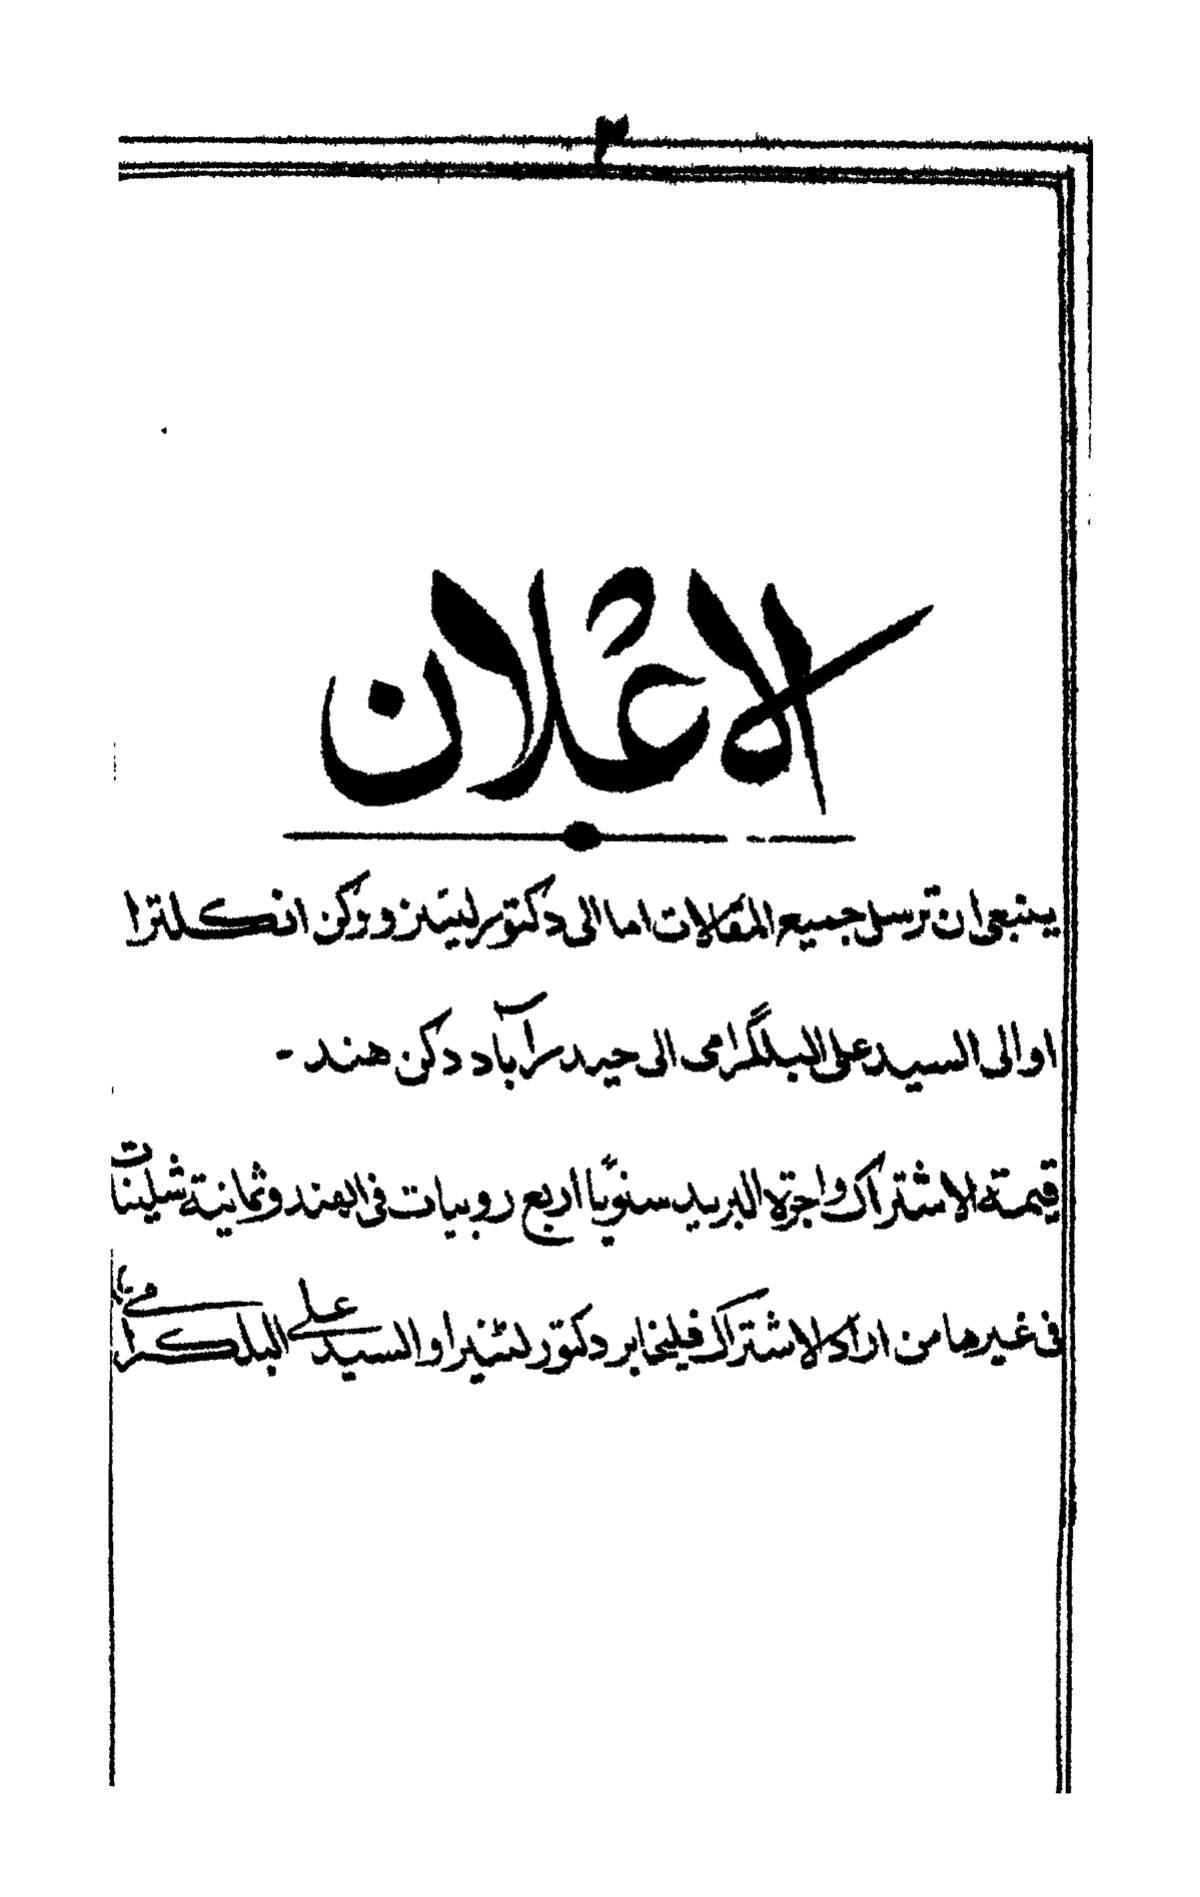 ٢
الاعلان
ينبغى ان ترسل جميع المقالات اما الى دكتور ليتنر ووكن انكلترا
او الى السيد على البلگرامى الى حيدرآباد دكن هند -
قيمة الاشتراك واجرة البريد سنويا اربع روبيات فى الهند وثمانية شلينات
فى غيرها من اراد الاشتراك فليخابر دكتور لتنير او السيد على البلكرامى